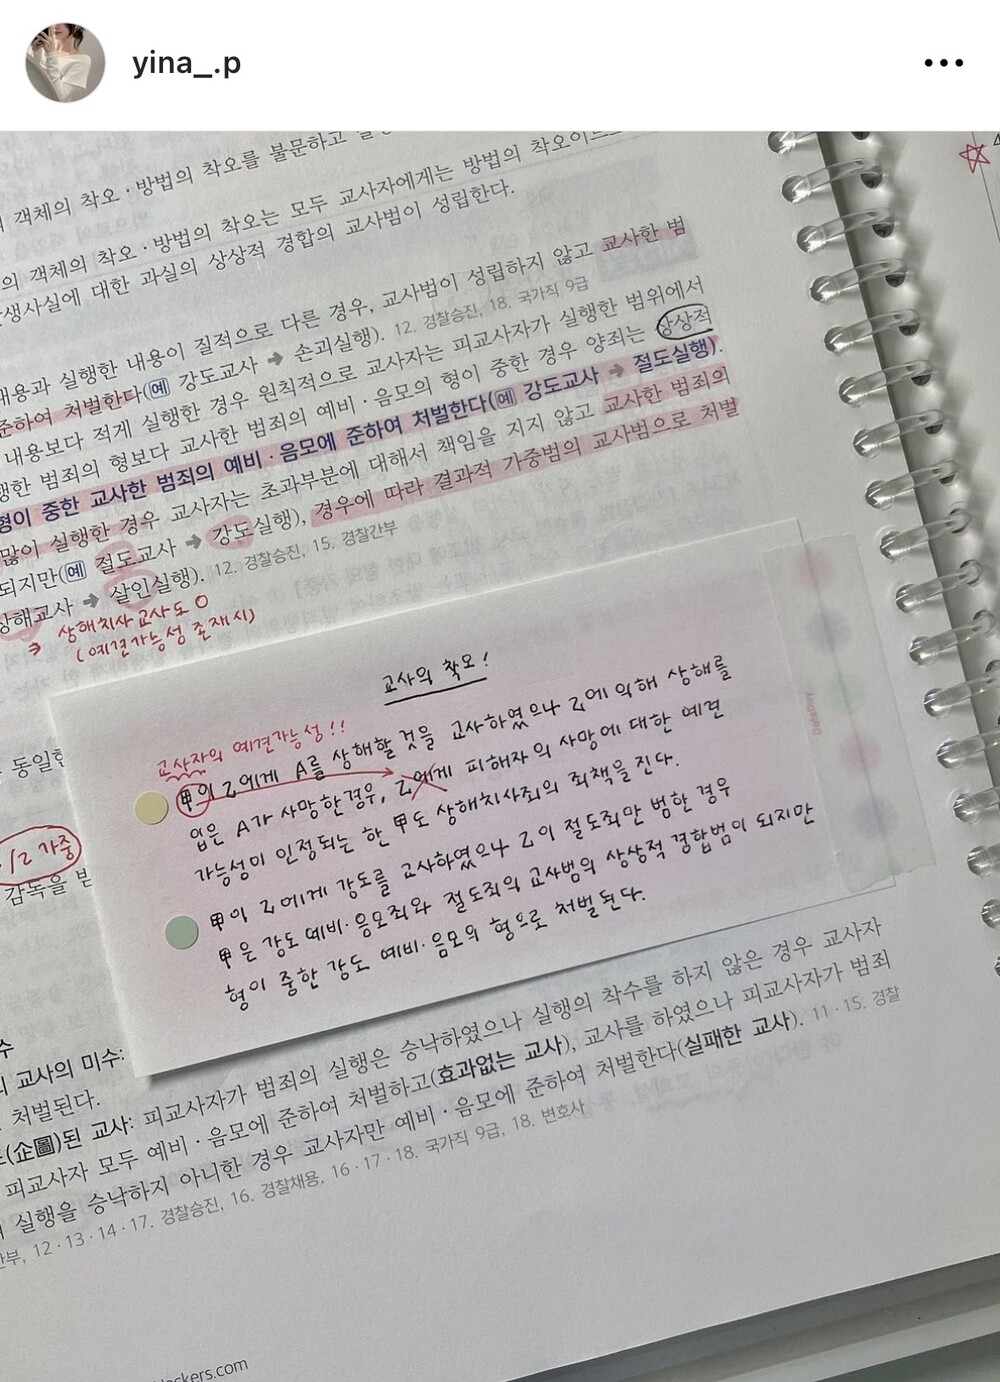 yina_.p
객체의 착오·방법의 착오를 불문하고
의 객체의 착오·방법의 착오는 모두 교사자에게는 방법의 착오이므로
생사실에 대한 과실의 상상적 경합의 교사범이 성립한다.
내용과 실행한 내용이 질적으로 다른 경우, 교사범이 성립하지 않고 교사한 범
준하여 처벌한다(예 강도교사 → 손괴실행). 12. 경찰승진, 18. 국가직 9급
내용보다 적게 실행한 경우 원칙적으로 교사자는 피교사자가 실행한 범위에서
행한 범죄의 형보다 교사한 범죄의 예비·음모의 형이 중한 경우 양죄는 상상적
형이 중한 교사한 범죄의 예비·음모에 준하여 처벌한다(예 강도교사 → 절도실행).
많이 실행한 경우 교사자는 초과부분에 대해서 책임을 지지 않고 교사한 범죄의
되지만(예 절도교사 → 강도실행), 경우에 따라 결과적 가중범의 교사범으로 처벌
상해교사 → 살인실행). 12. 경찰승진, 15. 경찰간부
→ 상해치사 교사도 O
(예견가능성 존재시)
교사의 착오!
교사자의 예견가능성!!
甲이 乙에게 A를 상해할 것을 교사하였으나 乙에 의해 상해를
입은 A가 사망한 경우, 乙에게 피해자의 사망에 대한 예견
가능성이 인정되는 한 甲도 상해치사죄의 죄책을 진다.
甲이 乙에게 강도를 교사하였으나 乙이 절도죄만 범한 경우
甲은 강도 예비·음모죄와 절도죄의 교사범의 상상적 경합범이 되지만
형이 중한 강도 예비·음모의 형으로 처벌된다.
동일한
1/2 가중
감독을 받
수
교사의 미수:
처벌된다.
(企圖)된 교사: 피교사자가 범죄의 실행은 승낙하였으나 실행의 착수를 하지 않은 경우 교사자
피교사자 모두 예비·음모에 준하여 처벌하고(효과없는 교사), 교사를 하였으나 피교사자가 범죄
실행을 승낙하지 아니한 경우 교사자만 예비·음모에 준하여 처벌한다(실패한 교사). 11·15. 경찰
간부, 12·13·14·17. 경찰승진, 16. 경찰채용, 16·17·18. 국가직 9급, 18. 변호사
Hackers.com